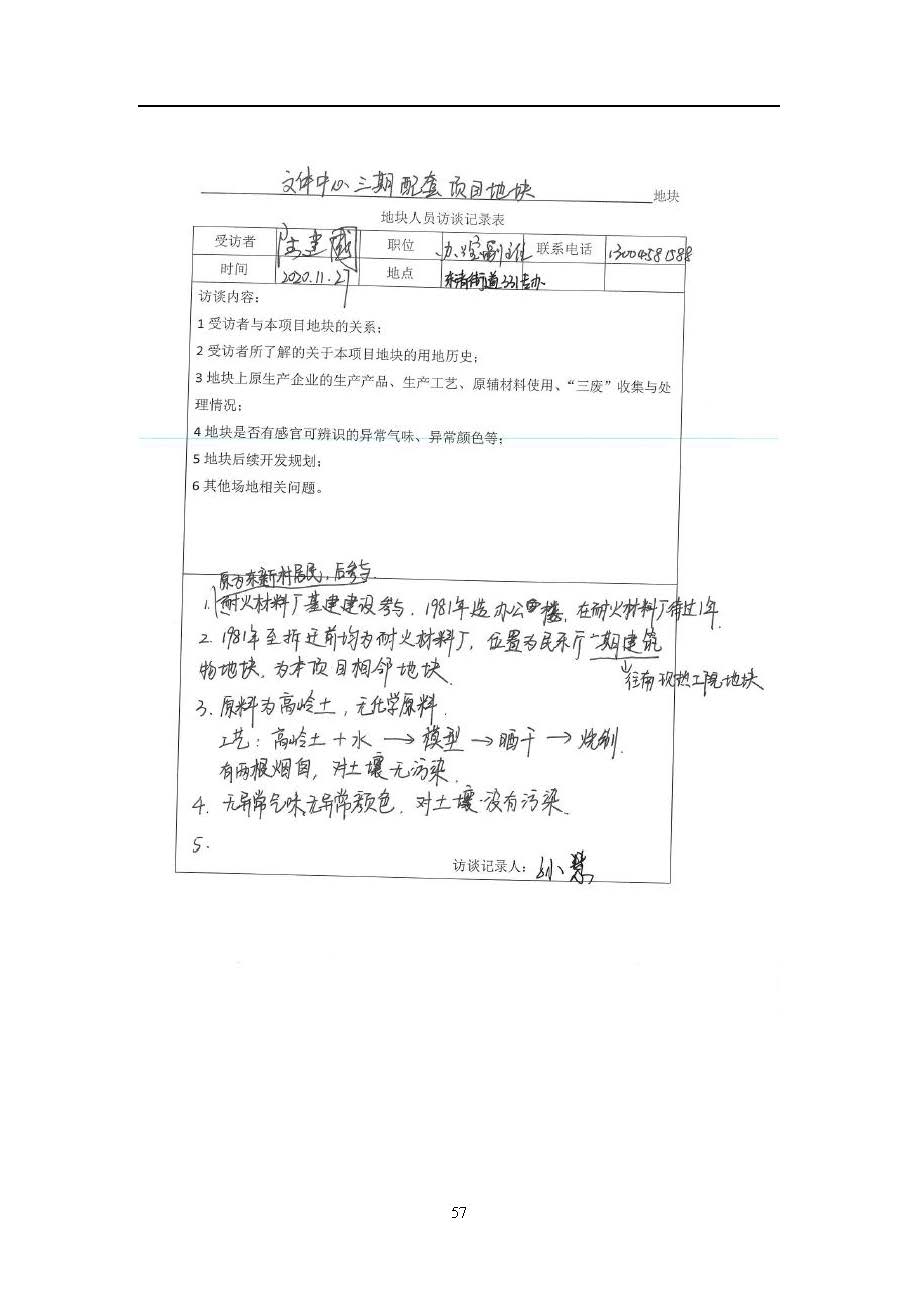 文体中心三期配套项目地块 地块
地块人员访谈记录表
受访者 建国 职位 办公室副主任 联系电话 13004581588
时间 2020.11.27 地点 街道331专办
访谈内容：
1 受访者与本项目地块的关系；
2 受访者所了解的关于本项目地块的用地历史；
3 地块上原生产企业的生产产品、生产工艺、原辅材料使用、“三废”收集与处
理情况；
4 地块是否有感官可辨识的异常气味、异常颜色等；
5 地块后续开发规划；
6 其他场地相关问题。
原为东新村居民，后参与
1. 耐火材料厂基建建设参与，1981年造办公楼，在耐火材料厂待过1年
2. 1981年至拆迁前均为耐火材料厂，位置为民乐厅一期建筑
物地块，为本项目相邻地块．
往南现热工院地块
3. 原料为高岭土，无化学原料．
工艺：高岭土＋水 → 模型 → 晒干 → 烧制．
有两根烟囱，对土壤无污染．
4. 无异常气味，无异常颜色．对土壤没有污染．
5.
访谈记录人： 孙慧
57